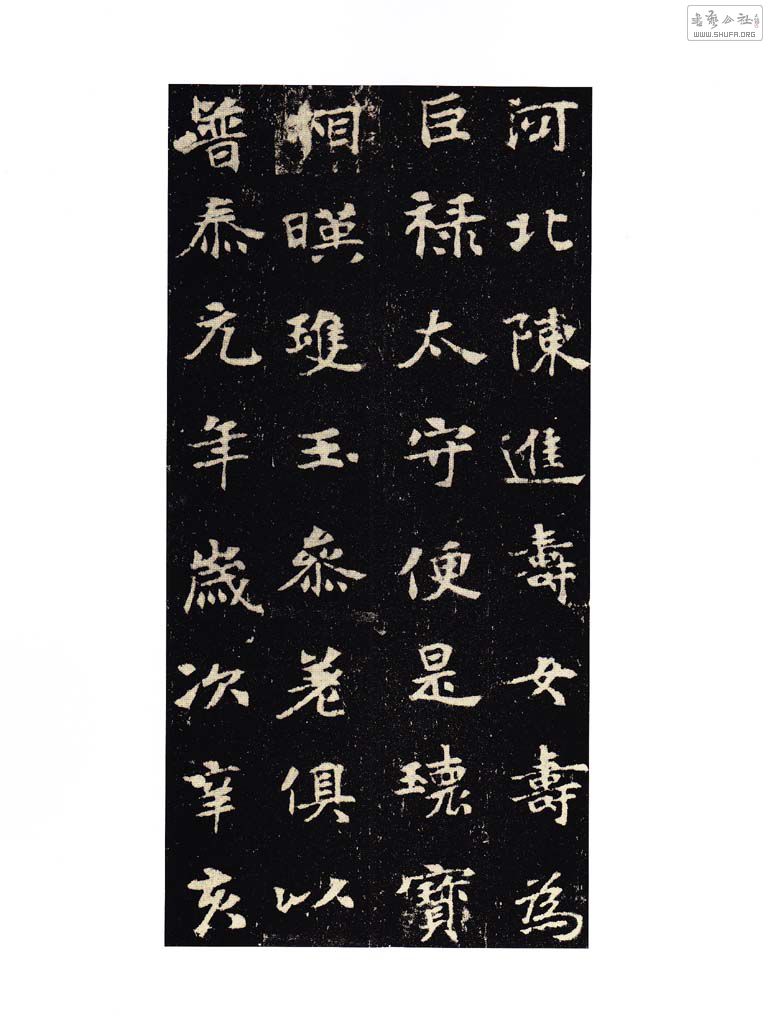 河北陳進壽女壽為
巨祿太守便是瓌寶
相暎璡玉參差俱以
普泰元年歲次辛亥
書藝公社
WWW.SHUFA.ORG